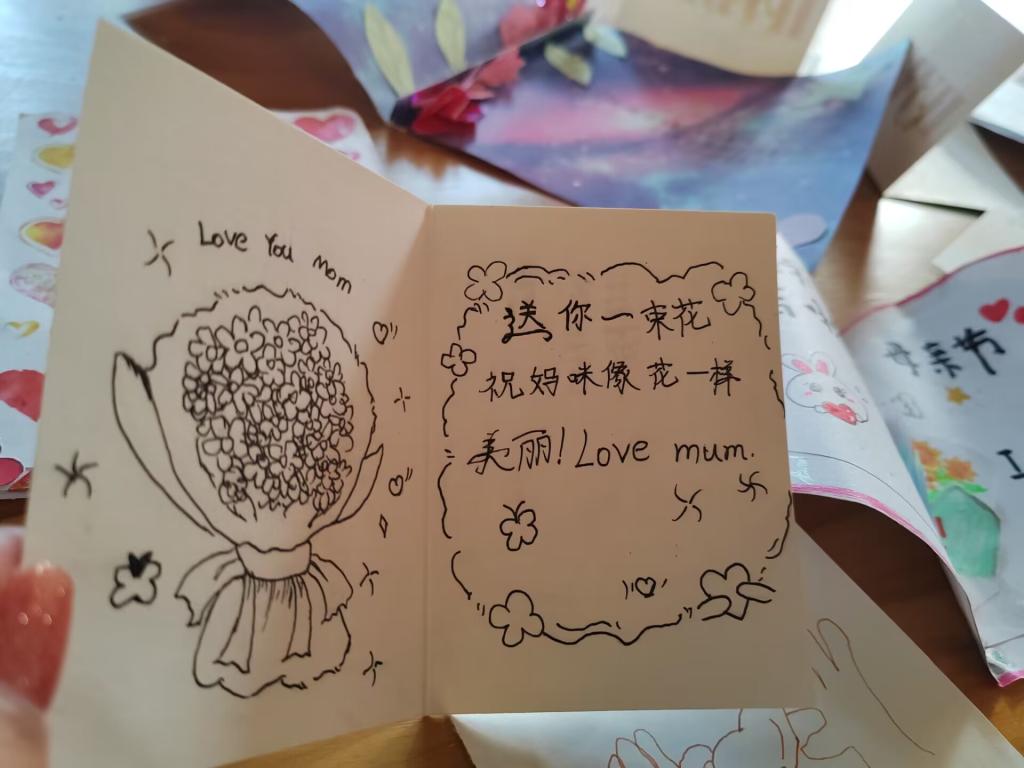 Love You Mom
送你一束花
祝妈咪像花一样
美丽!Love mum.
母亲节